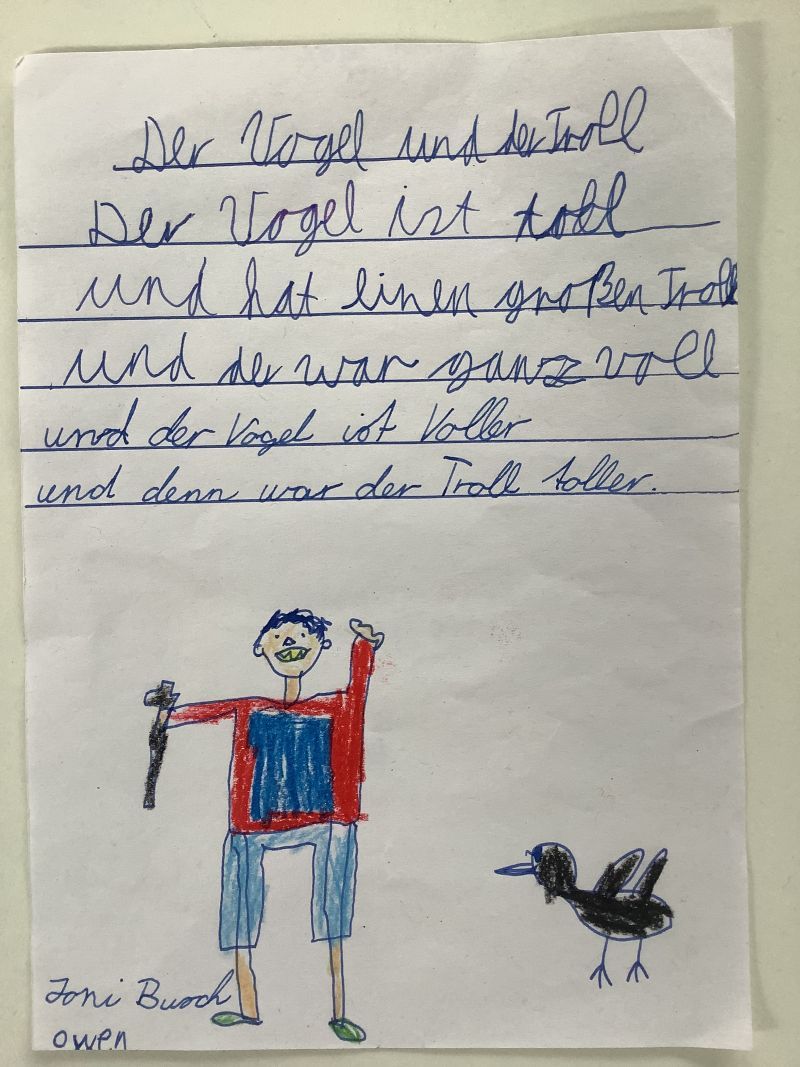 Der Vogel und der Troll
Der Vogel ist toll
und hat einen großen Troll
und der war ganz voll
und der Vogel ist Voller
und denn war der Troll toller.
Joni Busch
owen